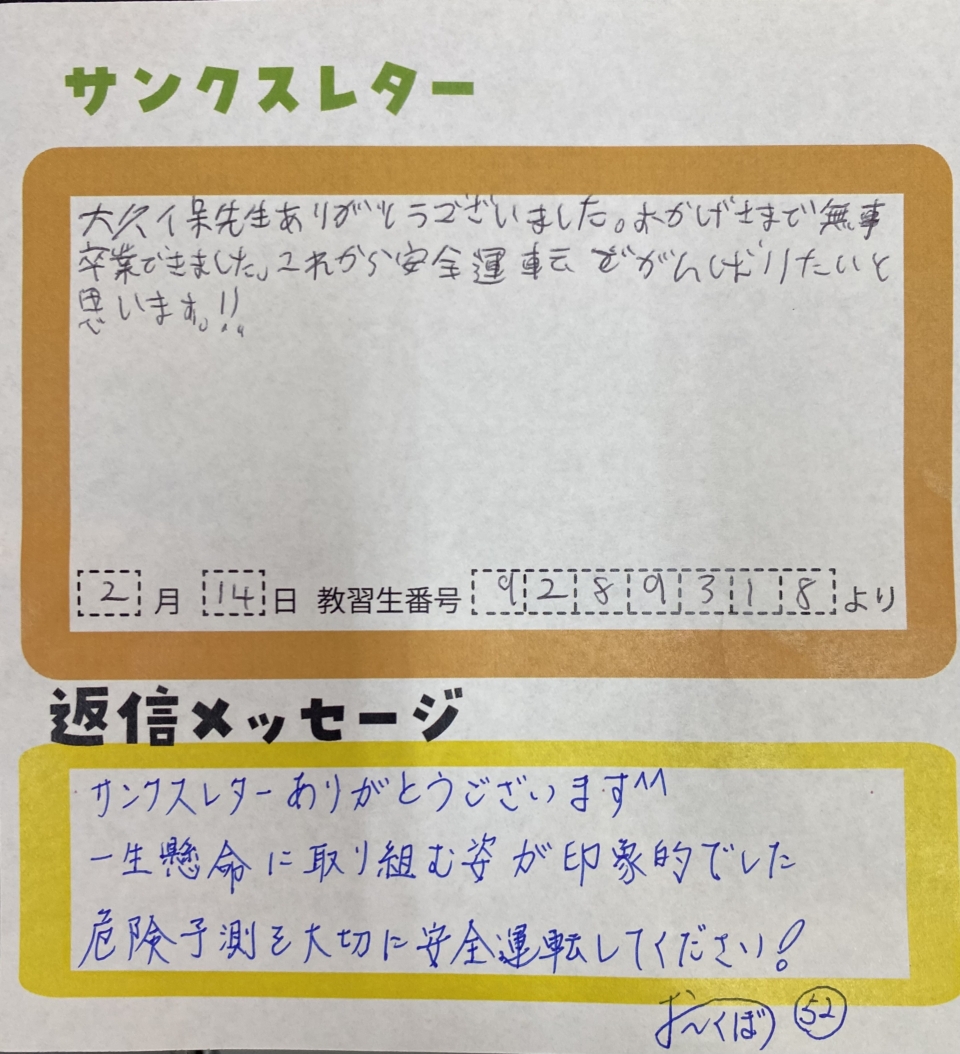 サンクスレター
大久保先生ありがとうございました。おかげさまで無事
卒業できました。これから安全運転でがんばりたいと
思います。!!
2月14日 教習生番号 9289318より
返信メッセージ
サンクスレターありがとうございます^^
一生懸命に取り組む姿が印象的でした
危険予測を大切に安全運転してください!
お〜くぼ 52